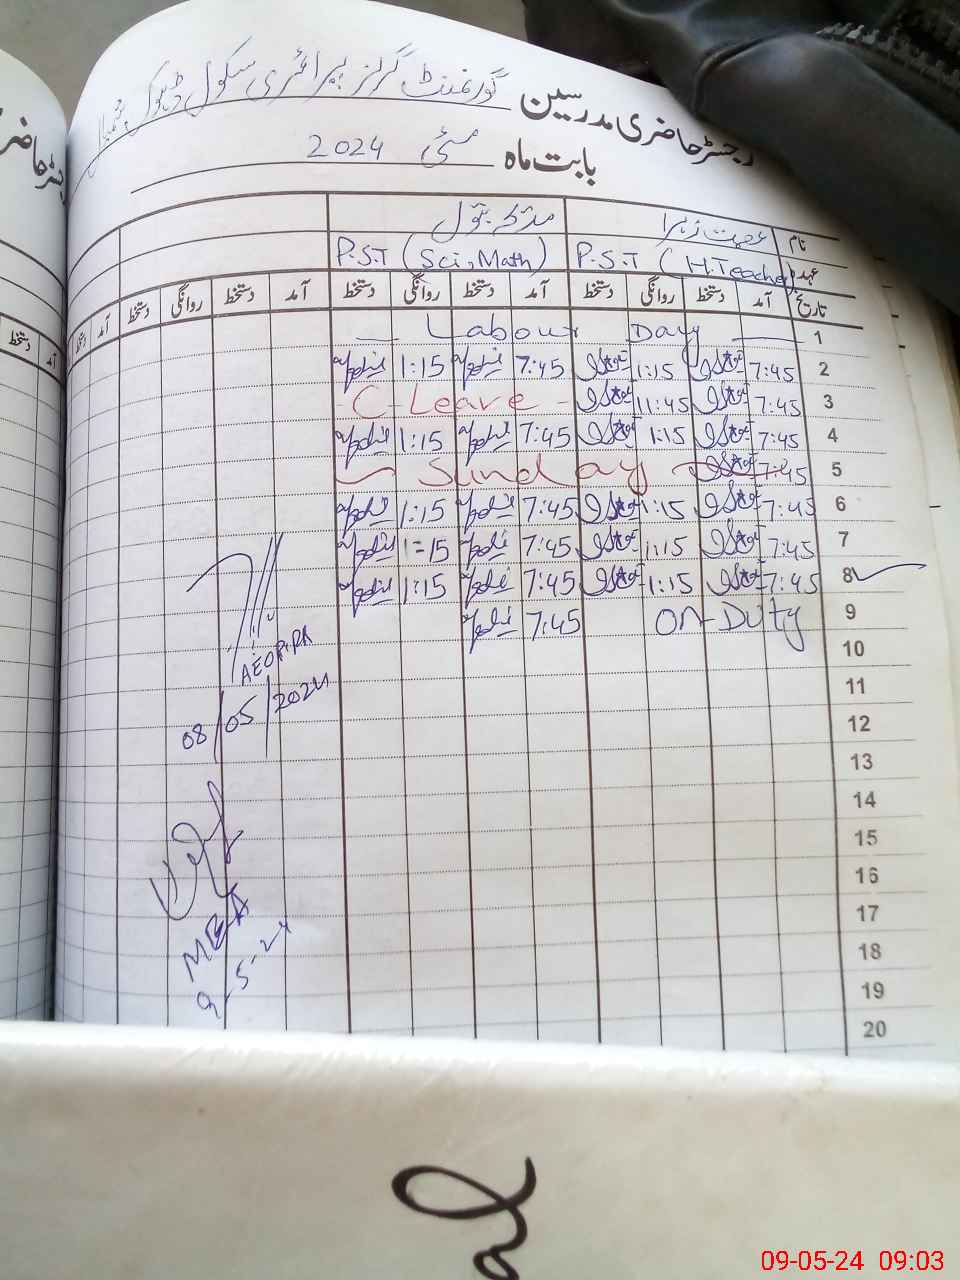 رجسٹر حاضری مدرسین گورنمنٹ گرلز پرائمری سکول
بابت ماہ مئی 2024
نام عصمت زہرا بتول
عہدہ P.S.T (H.Teacher) P.S.T (Sci, Math)
تاریخ آمد دستخط روانگی دستخط آمد دستخط روانگی دستخط آمد دستخط روانگی دستخط آمد دستخط
1 Labour Day
2 7:45 1:15 7:45 1:15
3 7:45 11:45 C-Leave
4 7:45 1:15 7:45 1:15
5 7:45 Sunday
6 7:45 1:15 7:45 1:15
7 7:45 1:15 7:45 1=15
8 7:45 1:15 7:45 1:15
9 On-Duty 7:45
10
11
12
13
14
15
16
17
18
19
20
08/05/2024
MEA
9-5-24
09-05-24 09:03